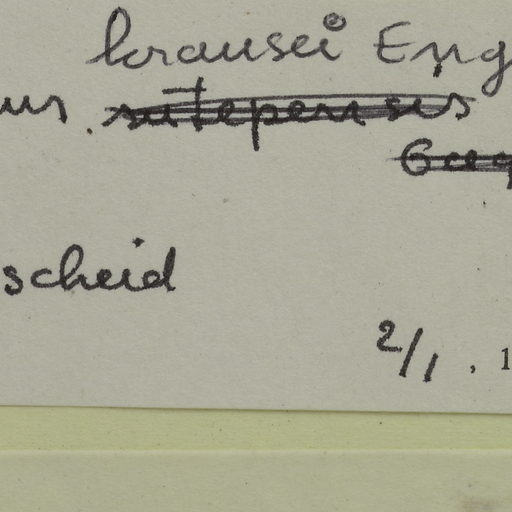 krausei Eng
us. sutepensis
Greg
scheid
2/1 , 1